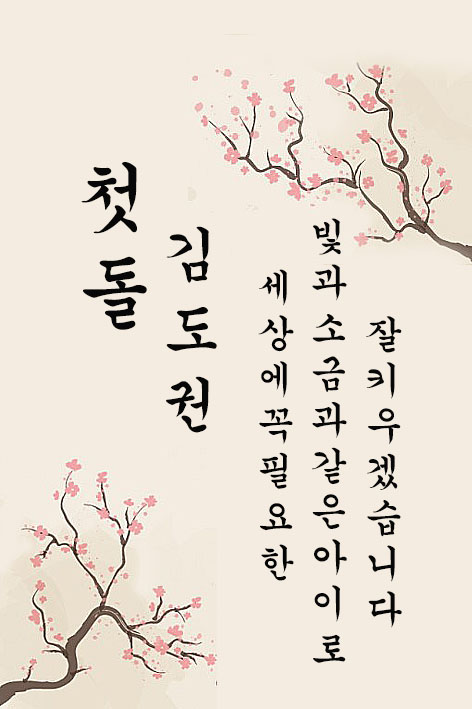 첫돌
김도권
세상에꼭필요한
빛과소금과같은아이로
잘키우겠습니다